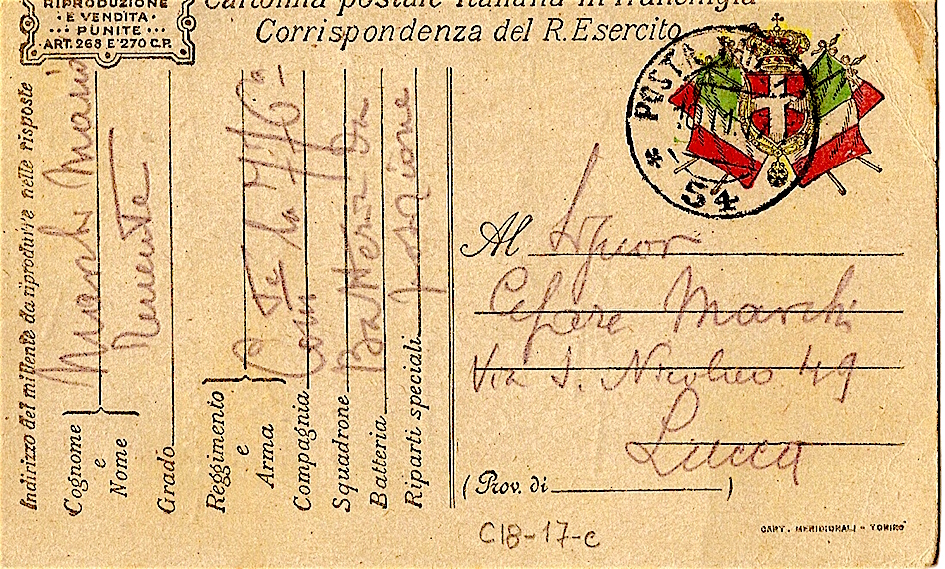 RIPRODUZIONE
E VENDITA
PUNITE
ART. 268 E 270 C.P.
Cartolina postale Italiana in franchigia
Corrispondenza del R. Esercito
POSTA
54
Al Signor
Cesare Marchi
Via S. Nicolao 49
Lucca
(Prov. di )
CART. MERIDIONALI - TORINO
C18-17-c
Indirizzo del mittente da riprodurre nelle risposte
Cognome e Nome
Marchi Mario
Grado
Reggimento e Arma
Compagnia
Squadrone
Batteria
Riparti speciali